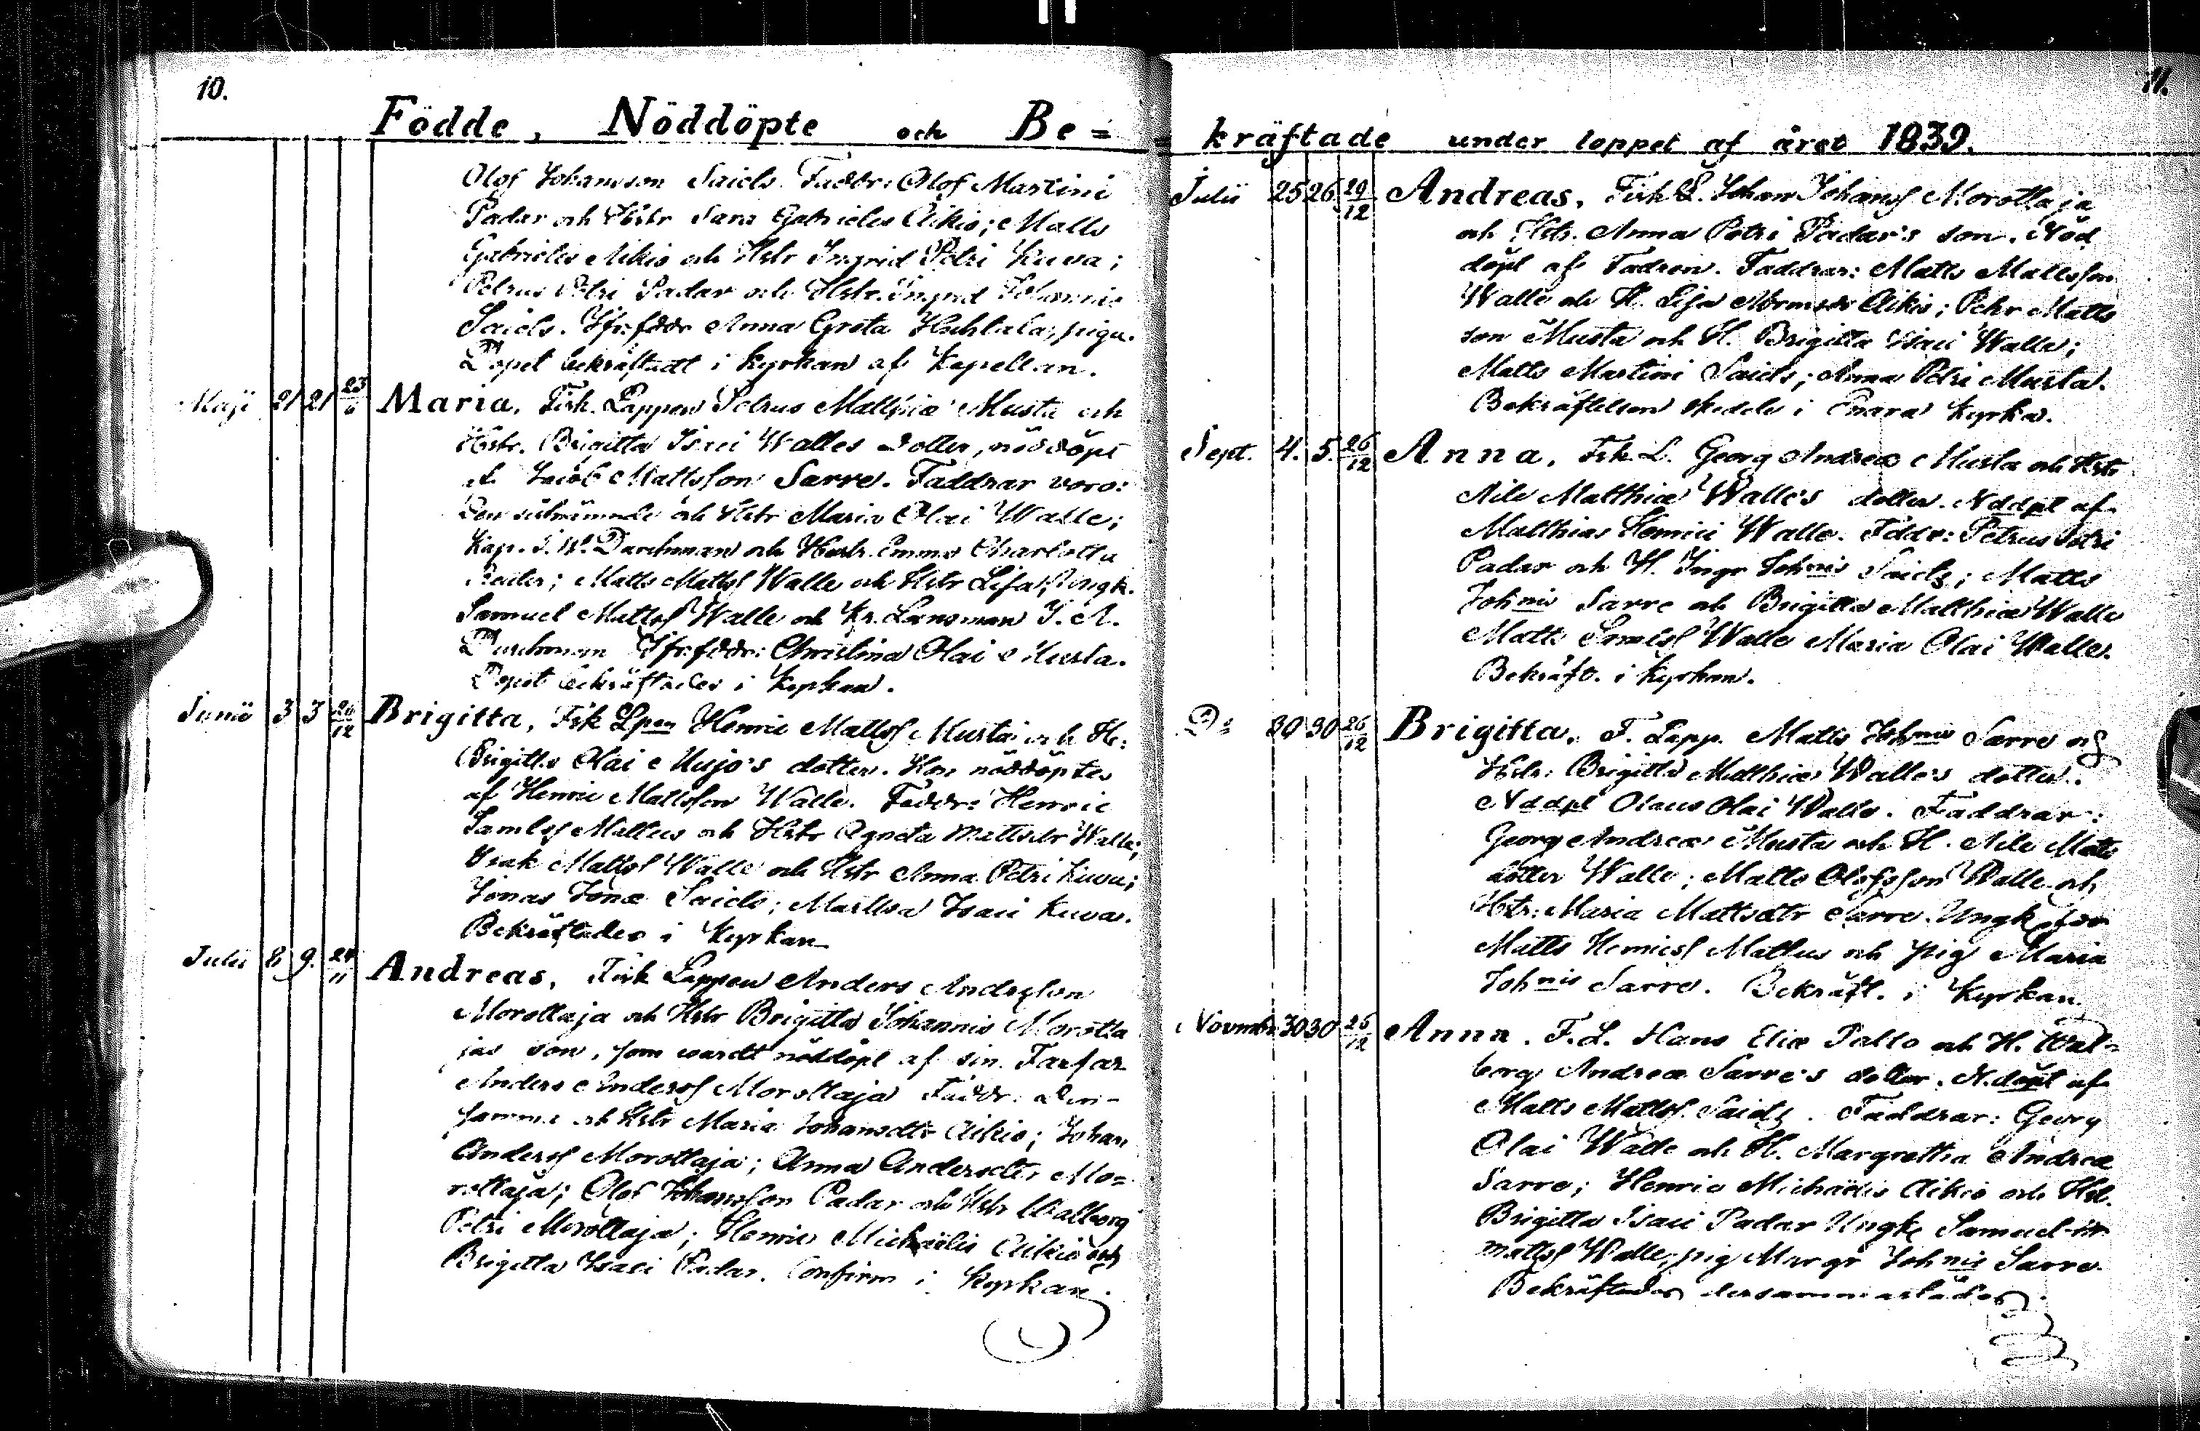 10.
Födde, Nöddöpte och Be=
Olof Johansson Saiels. Faddr: Olof Martini
Padar och Hstr Sara Gabrielis Aikio; Matts
Gabrielis Aikio och Hstr Ingrid Petri Kuva;
Petrus Petri Padar och Hstr. Ingrid Johannis
Saiels. Jfrfddr Anna Greta Huhtala, piga.
Dopet bekräftadt i kyrkan af Kapellan.
Maji 21 21 23/6 Maria, Fisk. Lappen Petrus Matthiæ Musta och
Hstr. Brigitta Isaci Walles dotter, nöddöpt
af Jacob Mattsson Sarre. Faddrar voro:
Den sistnämnde och Hstr Maria Olai Walle;
Kap. J. W. Durchman och Hustr. Emma Charlotta
Matts Mattss Walle och Hstr Lisa; Ungk.
Samuel Mattss Walle och Kr. Länsman J. A.
Durchman Jfrfddr: Christina Olai Musta.
Dopet bekräftades i Kyrkan.
Junii 3 3 26/12 Brigitta, Fisk Lpen Henric Mattss Musta och H:
Brigitta Olai Mujo's dotter. Hon nöddöptes
af Henric Mattsson Walle. Faddr: Henric
Samlss Mattus och Hstr Agneta Mattsdtr Walle;
Isak Mattss Walle och Hstr Anna Petri Kuva;
Jonas Jonæ Saiels; Martha Isaci Kuva.
Bekräftades i Kyrkan
Julii 8 9. 24/11 Andreas, Fisk Lappen Anders Andersson
Morottaja och Hstr Brigitta Johannis Morotta
jas son, som wardt nöddöpt af sin Farfar
Anders Anderss Morottaja Faddr: Den-
samme och Hstr Maria Johansdtr Aikio; Johan
Anderss Morottaja; Anna Andersdtr Mo=
rottaja; Olof Johansson Padar och Hstr Walborg
Petri Morottaja; Henric Michaelis Aikio och
Brigitta Isaci Padar. Confirm i Kyrkan.
11.
kräftade under loppet af året 1839.
Julii 25 26 29/12 Andreas, Fisk L. Johan Johanss Morottaja
och Hstr. Anna Petri Padar's son. Nöd
döpt af Fadren. Faddrar: Matts Mattsson
Walle och H. Lisa Aikio; Pehr Matts
son Musta och H. Brigitta Isaci Walle;
Matts Martini Saiels; Anna Petri Musta.
Bekräftelsen skedde i Enara Kyrka.
Sept. 4. 5. 26/12 Anna, Fsk L. Georg Andreæ Musta och Hstr
Aile Matthiæ Walle's dotter. Nddpt af
Matthias Henrici Walle. Fddr: Petrus Petri
Padar och H. Ingr Johnis Saiels; Matts
Johnis Sarre och Brigitta Matthiæ Walle
Matts Samlss Walle Maria Olai Walle.
Bekräft. i kyrkan.
D:o 30 30 26/12 Brigitta, F. Lapp. Matts Johnis Sarre och
Hstr: Brigitta Matthiæ Walle's dotter.
Nddpt Olaus Olai Walle. Faddrar:
Georg Andreæ Musta och H. Aile Matts
dotter Walle; Matts Olofsson Walle och
Hstr: Maria Mattsdtr Sarre. Ungk fddr
Matts Henricss Mattus och pig Maria
Johnis Sarre. Bekräft. i Kyrkan.
Novmber 30 30 26/12 Anna. F. L. Hans Eliæ Palto och H. Wal=
borg Andreæ Sarre's dotter. N.döpt af
Matts Mattss. Saiels. Faddrar: Georg
Olai Walle och H. Margretha Andreæ
Sarre; Henric Michaelis Aikio och Hst.
Brigitta Isaci Padar Ungk Samuel
Mattss Walle, pig Margr Johnis Sarre.
Bekräftades dersammastädes.